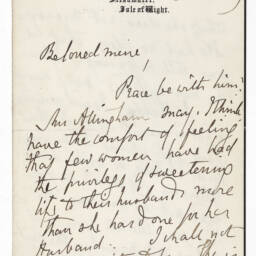 Freshwater,
Isle of Wight.
Beloved mine!
Peace be with him!
Mrs Allingham may, I think
have the comfort of feeling
that few women have had
the privilege of sweetening
life to their husbands more
than she has done for her
husband. I shall not